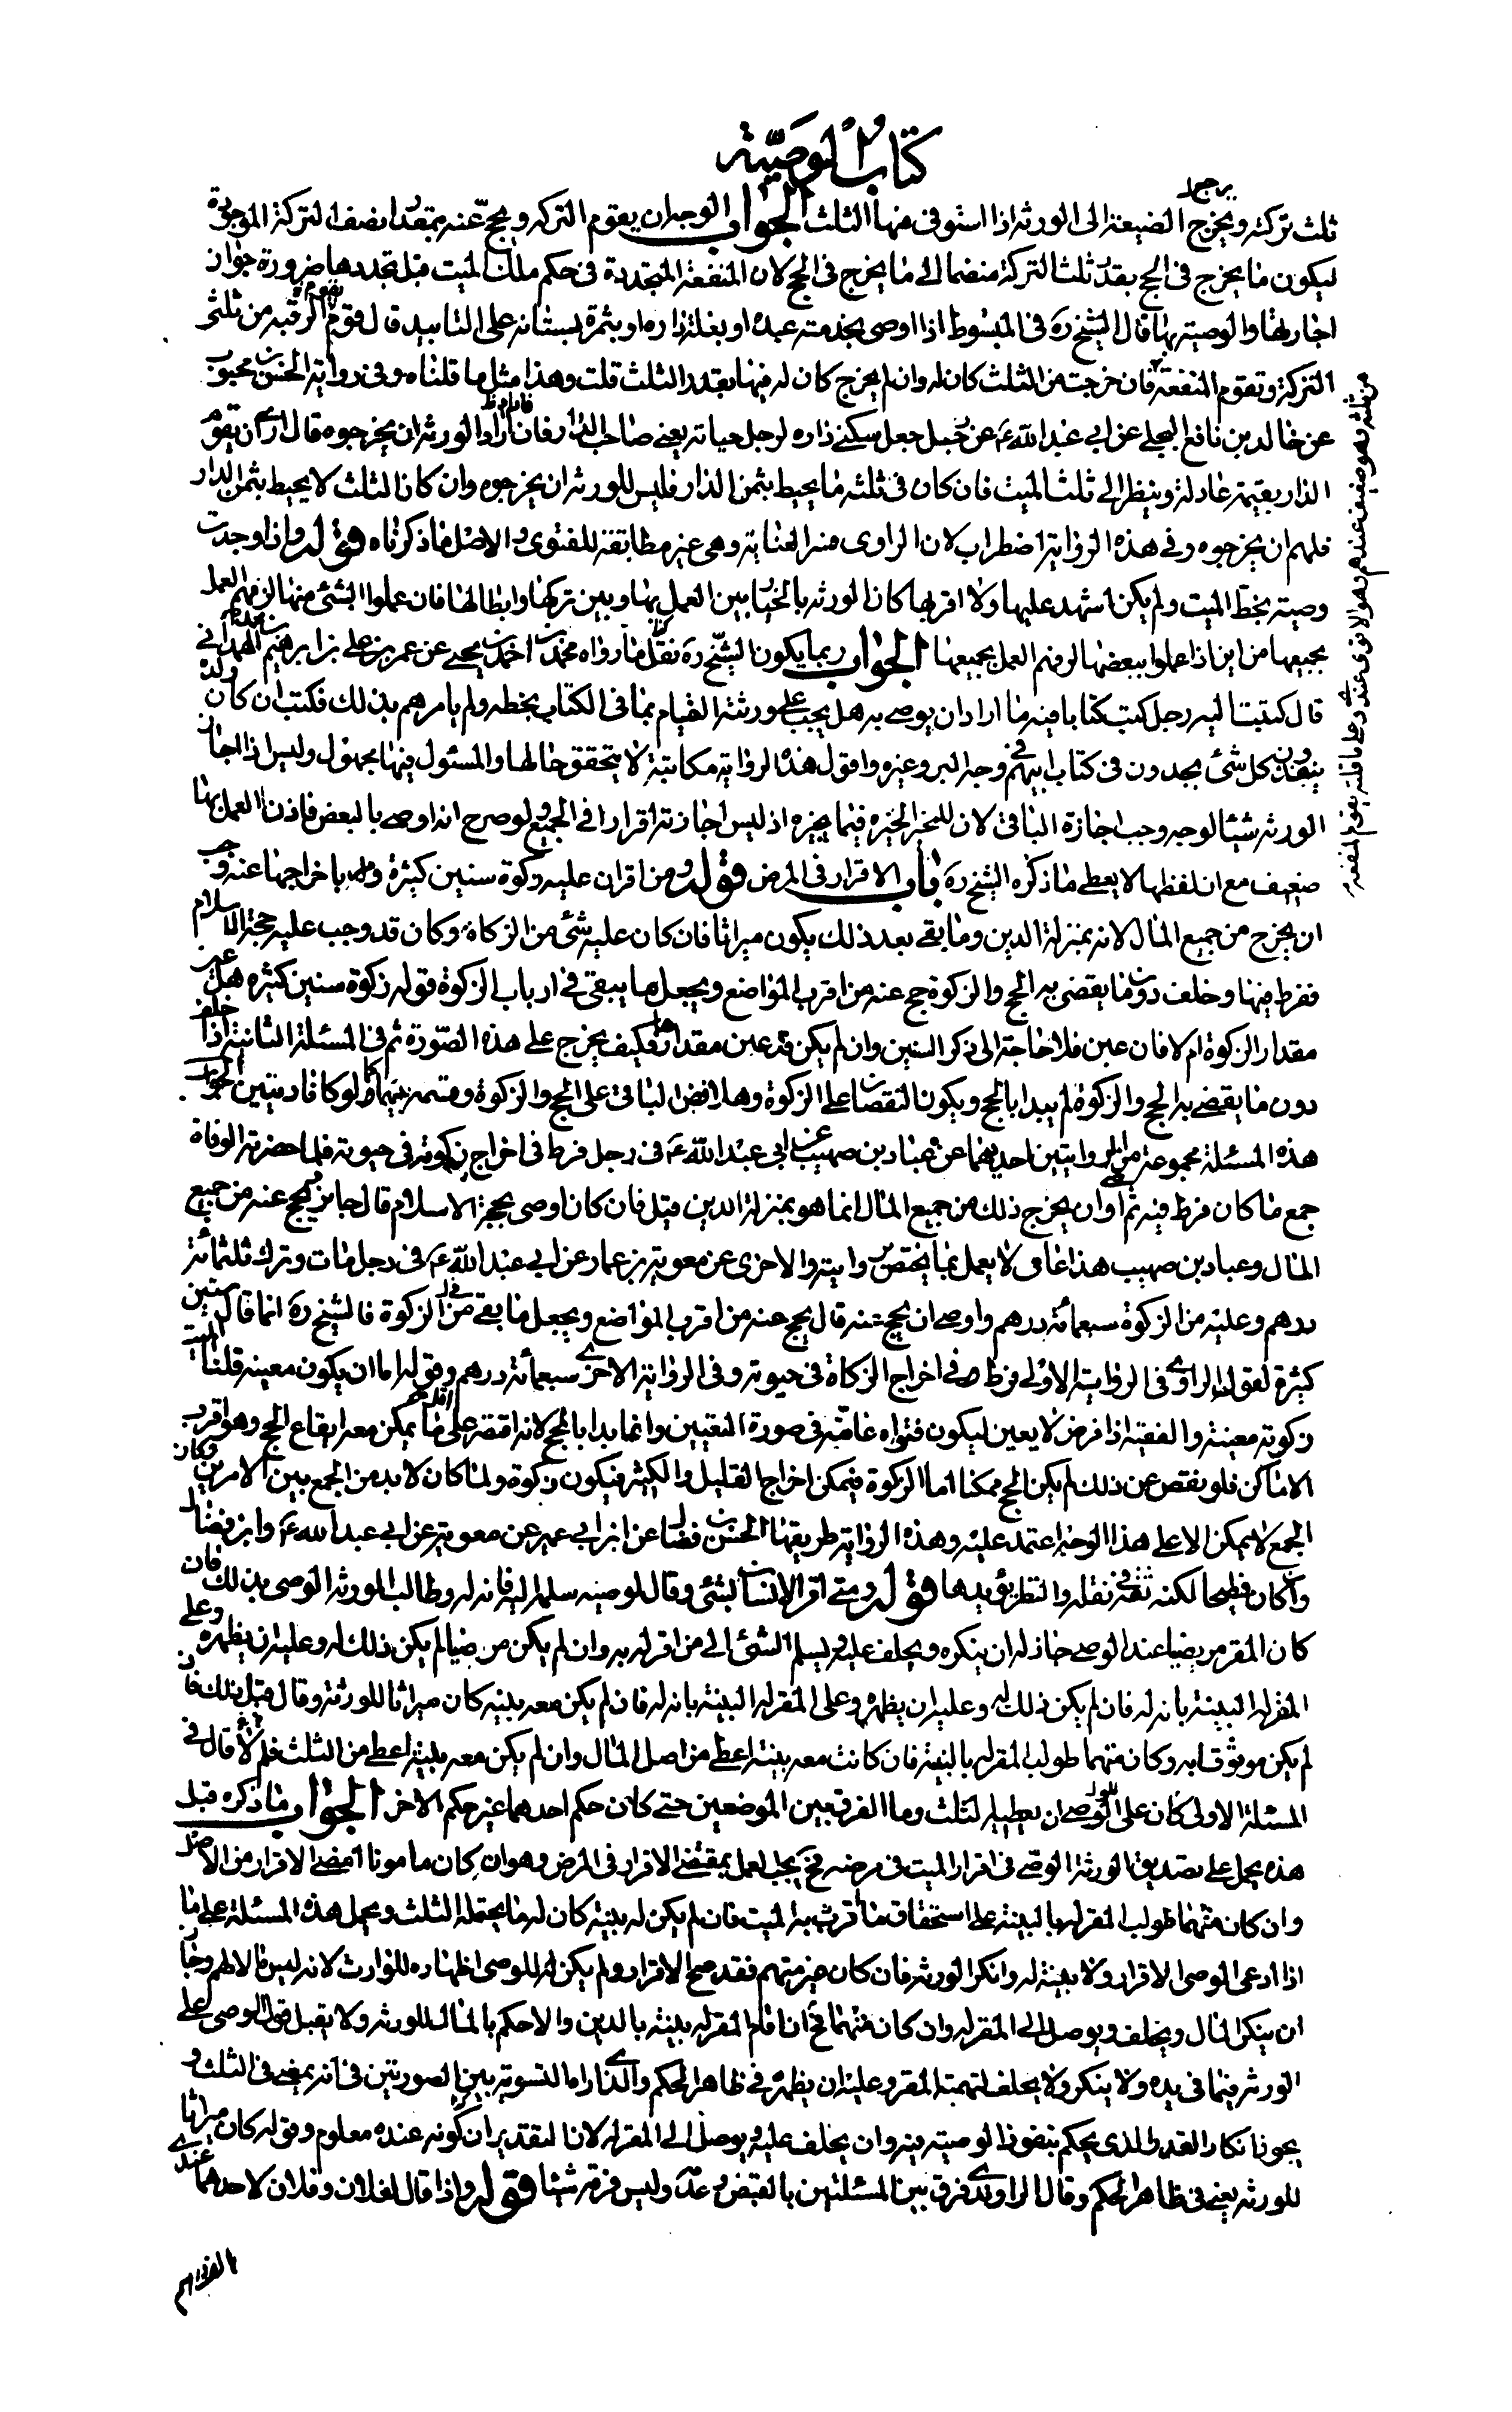 كتاب الوصية
يرجع
ثلث تركته ويخرج الضيعة الى الورثة اذا استوفى منها الثلث الجواب الوجه ان يقوم التركه ويحج عنه بمقدار نصف التركة الموجودة
ليكون ما يخرج فى الحج بقدر ثلث التركة منضما الى ما يخرج فى الحج لان المنفعة المتجددة فى حكم ملك الميت قبل تجددها ضرورة جواز
اجارتها والوصية بها قال الشيخ ره فى المبسوط اذا اوصى بخدمته عبده او بغلة داره او بثمرة بستانه على التابيد قال قوم تقوم الرقبه من ثلث
التركة وتقوم المنفعة فان خرجت من الثلث كان له وان لم يخرج كان له فيها بقدر الثلث قلت وهذا مثل ما قلناه وفى رواية الحسن بن محبوب
عن خالد بن نافع البجلى عن ابى عبد الله ع عن رجل جعل سكنى داره لرجل حياته يعنى صاحب الدار فان اراد الورثة ان يخرجوه قال ارى ان يقوم
الدار بقيمة عادلة وينظر الى ثلث الميت فان كان فى ثلثه ما يحيط بثمن الدار فليس للورثة ان يخرجوه وان كان الثلث لا يحيط بثمن الدار
فلهم ان يخرجوه وفى هذه الرواية اضطراب لان الراوى فسر العناية وهى غير مطابقة للفتوى والاصل ما ذكرناه قوله واذا وجدت
وصية بخط الميت ولم يكن اشهد عليها ولا اقر بها كان الورثة بالخيار بين العمل بها وبين تركها وابطالها فان عملوا بشئ منها لزمهم العمل
بجميعها من اين اذا عملوا ببعضها لزمهم العمل بجميعها الجواب ربما يكون الشيخ ره نقل ما رواه محمد بن احمد بن يحيى عن عمر بن على بن ابرهيم بن محمد الهمدانى
قال كتبت اليه رجل كتب كتابا فيه ما اراد ان يوصى به هل يجب على ورثته القيام بما فى الكتاب بخطه ولم يامرهم بذلك فكتب ان كان ولده
ينفذون كل شئ يجدون فى كتاب ابيهم فى وجه البر وغيره واقول هذه الرواية مكاتبة لا يتحقق حالها والمسئول فيها مجهول وليس اذا اجاز
الورثة شيئا لوجه وجب اجازة الباقى لان للمخير الخيره فيما يجيزه اذ ليس اجازته اقرارا فى الجميع ولو صرح انه اوصى بالبعض فاذن العمل بها
ضعيف مع ان لفظها لا يعطى ما ذكره الشيخ ره باب الاقرار فى المرض قوله ومن اقر ان عليه زكوة سنين كثيرة وامر باخراجها عنه وجب
ان يخرج من جميع المال لانه بمنزلة الدين وما بقى بعد ذلك يكون ميراثا فان كان عليه شئ من الزكاة وكان قد وجب عليه حجة الاسلام
ففرط فيها وخلف دون ما يقضى به الحج والزكوة حج عنه من اقرب المواضع ويجعل ما يبقى فى ارباب الزكوة قوله زكوة سنين كثيره هل عين
مقدار الزكوة ام لا فان عين فلا حاجة الى ذكر السنين وان لم يكن قد عين مقدارها فكيف يخرج على هذه الصورة ثم فى المسئلة الثانية اذا خلف
دون ما يقضى به الحج والزكوة لم يبدا بالحج ويكون النقصان على الزكوة وهلا افض الباقى على الحج والزكوة وقسمه بينهما كما لو كانا دينين الجواب
هذه المسئلة مجموعة من الروايتين احديهما عن عباد بن صهيب عن ابى عبد الله ع فى رجل فرط فى اخراج زكوته فى حيوته فلما حضرته الوفاة
جمع ما كان فرط فيه ثم اوصى ان يخرج ذلك من جميع المال انما هو بمنزلة الدين قيل فان كان اوصى بحجة الاسلام قال جايز يحج عنه من جميع
المال وعباد بن صهيب هذا عامى لا يعمل بما يختص بروايته والاخرى عن معوية بن عمار عن ابى عبد الله ع فى رجل مات وترك ثلثمائة
درهم وعليه من الزكوة سبعمائة درهم واوصى ان يحج عنه قال يحج عنه من اقرب المواضع ويجعل ما بقى فى الزكوة فالشيخ ره انما قال سنين
كثيرة لقول الراوى فى الرواية الاولى فرط فى اخراج الزكاة فى حيوته وفى الرواية الاخرى سبعمائة درهم وقوله اما ان يكون معينه قلنا الميت
زكوته معينة والفقيه اذا فرض لا يعين ليكون فتواه عامه فى صورة التعيين وانما بدا بالحج لانه اقتصر على اقل ما يمكن معه ايقاع الحج وهو اقرب
الاماكن فلو نقص عن ذلك لم يكن الحج ممكنا اما الزكوة فيمكن اخراج القليل والكثير فيكون زكوة ولما كان لابد من الجمع بين الامرين وكان
الجمع لا يمكن الا على هذا الوجه اعتمد عليه وهذه الرواية طريقها الحسن بن فضال عن ابن ابى عمير عن معوية عن ابى عبد الله ع وابن فضال
وان كان فطحيا لكنه ثقة فى نقله والنظر يؤيدها قوله ومتى اقر الانسان بشئ وقال لوصيه سلمه اليه فانه له وطالب الورثة الوصى بذلك فان
كان المقر مرضيا عند الوصى جاز له ان ينكره ويحلف عليه ويسلم الشئ الى من اقر له به وان لم يكن مرضيا لم يكن ذلك له وعليه ان يظهره وعلى
المقر له البينة بانه له فان لم يكن ذلك له وعليه ان يظهره وعلى المقر له البينة بانه له فان لم يكن معه بينة كان ميراثا للورثة وقال قبل ذلك فان
لم يكن موثوقا به وكان متهما طولب المقر له بالبينة فان كانت معه بينة اعطى من اصل المال وان لم يكن معه بينة اعطى من الثلث فلم لا قال فى
المسئلة الاولى كان على الوصى ان يعطيه الثلث وما الفرق بين الموضعين حتى كان حكم احدهما غير حكم الاخر الجواب ما ذكره قبل
هذه يحمل على تصديق الورثة الوصى فى اقرار الميت فى مرضه فح يجب العمل بمقتضى الاقرار فى المرض وهو ان كان مامونا امضى الاقرار من الاصل
وان كان متهما طولب المقر له بالبينة على استحقاق ما اقر به الميت فان لم يكن له بينة كان له ما يحتمله الثلث ويحمل هذه المسئلة على ما
اذا ادعى الوصى الاقرار ولا بينة له وانكر الورثة فان كان غير متهم فقد صح الاقرار ولم يكن للوصى اظهاره للوارث لانه ليس مالا لهم وجاز
ان ينكر المال ويحلف ويوصل الى المقر له وان كان متهما فح ان اقام المقر له بينة بالدين والا حكم بالمال للورثه ولا يقبل قول الوصى على
الورثة فيما فى يده ولا ينكر ولا يحلف لتهمة المقر وعليه ان يظهره فى ظاهر الحكم والذى اراه التسوية بين الصورتين فى انه يمضى فى الثلث و
يجوز انكار القدر الذى يحكم بنفوذ الوصية فيه وان يحلف عليه ويوصل الى المقر له لان التقدير ان كونه عنده معلوم وقوله كان ميراثا
للورثة يعنى فى ظاهر الحكم وقال الراوندى فرق بين المسئلتين بالقبض وعدمه وليس فرقه شيئا قوله واذا قال لفلان وفلان لاحدهما عندى
من ثلثه وهو ضعيف عندهم وهو الاقوى عندى وعلى ما قلته يقوم المنفعة